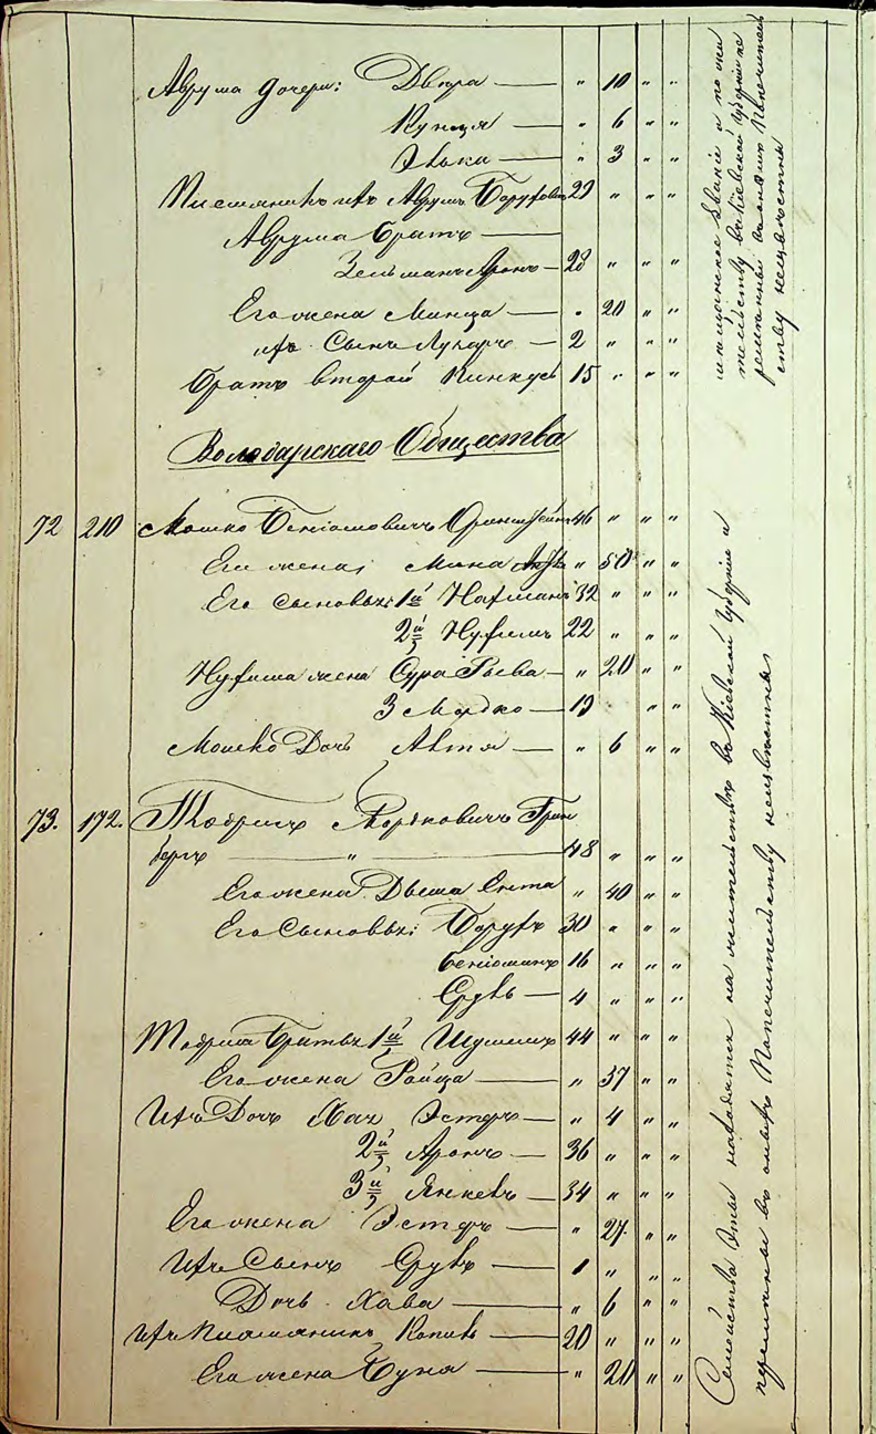 Аврума дочери: Двера — " 10 " "
Кунця — " 6 " "
Элька — " 3 " "
Племянникъ ихъ Аврумъ Борухович 29 " " "
Аврума братъ —
Зельманъ Аронъ — 28 " " "
Его жена Минца — " 20 " "
ихъ Сынъ Лузоръ — 2 " " "
Братъ второй Пинкусъ 15 " " "
Володарскаго Общества
72 210 Мошко Беніоминовичъ 46 " " "
Его жена Мина " 50 " "
Его сыновья: 1й Нахманъ 32 " " "
2й Нухимъ 22 " " "
Нухима жена Сура Рыва — " 20 " "
3 Мордко — 19 " "
Мошко Дочь — " 6 " "
73. 172. Мордковичъ Грин
бергъ — " — 48 " " "
Его жена Двейша Ента " 40 " "
Его Сыновья: Борухъ 30 " " "
Беніоминъ 16 " " "
Сруль — 4 " " "
Братья 1й 44 " " "
Его жена Ройца — " 37 " "
Ихъ Дочь Хая Эстеръ — " 4 " "
2й Аронъ — 36 " " "
3й Янкель — 34 " " "
Его жена Эстеръ — " 27 " "
Ихъ Сынъ Сруль — 1 " " "
Дочь Хава — " 6 " "
Ихъ Племянник Копель — 20 " " "
Его жена Буня — " 20 " "
мѣщанское званіе и по
жительству въ Кіевской губерніи не
Попечитель
ству неизвѣстны
Семейства Эти находятся на жительствѣ въ Кіевской губерніи и
перечислены въ оныхъ Попечительству неизвѣстны